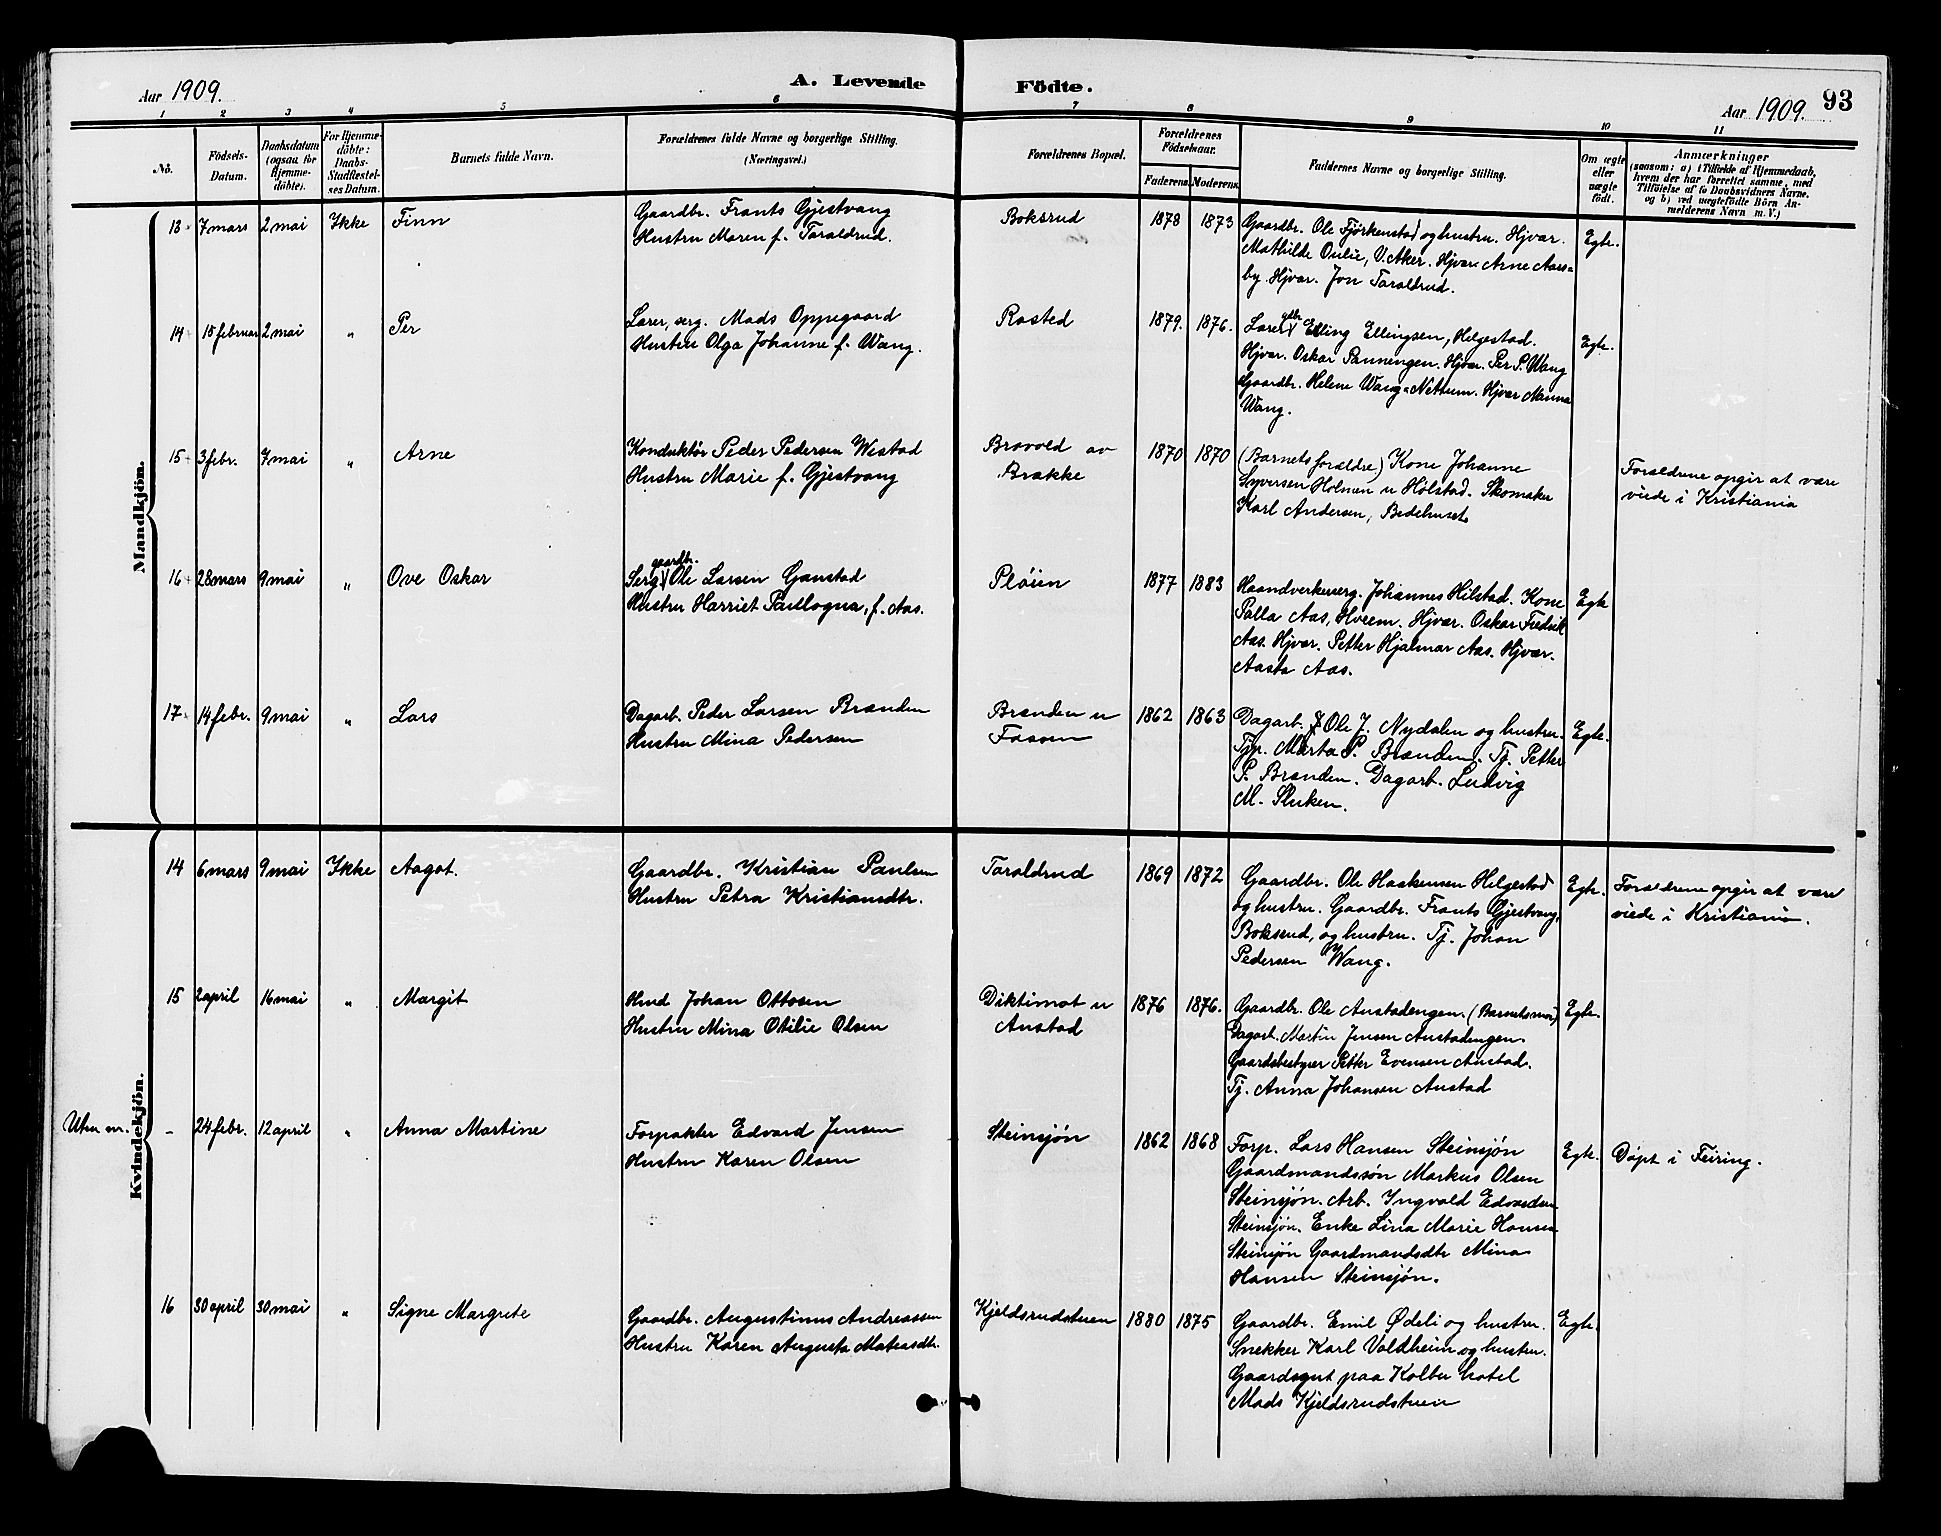 Aar 1909.
A. Levende Födte.
Aar 1909.
93
1 2 3 4 5 6 7 8 9 10 11
No.
Födsels-Datum.
Daabsdatum (ogsaa for Hjemmedöbte).
For Hjemmedöbte: Daabs-Stadfæstelses Datum.
Barnets fulde Navn.
Forældrenes fulde Navne og borgerlige Stilling.
(Næringsvei.)
Forældrenes Bopæl.
Forældrenes Födselsaar.
Faderens. Moderens.
Faddernes Navne og borgerlige Stilling.
Om ægte eller uægte født.
Anmærkninger
(saasom: a) i Tilfælde af Hjemmedaab,
hvem der har forrettet samme, med
Tilføielse af to Daabsvidners Navne,
og b) ved uægtefødte Börn An-
melderens Navn m. V.)
Mandkjön.
13 7 mars 2 mai Ikke Finn
Gaardbr. Frants Gjestvang
Hustru Maren f. Taraldrud.
Boksrud
1878 1873
Gaardbr. Ole Fjørkenstad og hustru. Hjvær.
Mathilde Oulie, V. Aker. Hjvær. Arne Aars-
by. Hjvær. Jon Taraldrud.
Egte.
14 15 februar 2 mai " Per
Lærer, serg. Mads Oppegaard
Hustru Olga Johanne f. Wang.
Rosted
1879. 1876.
Lærer Elling Ellingsen, Helgestad.
Hjvær. Oskar Panningen. Hjvær. Per P. Wang
Gaardbr. Helene Wang-Nettum. Hjvær Manna
Wang.
Egte.
15 3 febr. 7 mai " Arne
Konduktør Peder Pedersen Westad
Hustru Marie f. Gjestvang
Brovold av
Brække
1870 1870
(Barnets forældre.) Kone Johanne
Syversen Holmen u Holstad. Skomaker
Karl Andersen, Bedehuset.
Forældrene opgir at være
viede i Kristiania
16 28 mars 9 mai " Ove Oskar
gaardbr.
Serg. Ole Larsen Ganstad
Hustru Harriet Paulogna, f. Aas.
Pløien
1877 1883
Haandverkerserg. Johannes Hilstad. Kone
Palla Aas, Hveem. Hjvær. Oskar Fredrik
Aas. Hjvær. Petter Hjalmar Aas. Hjvær.
Aasta Aas.
Egte
17 14 febr. 9 mai " Lars
Dagarb. Peder Larsen Brænden
Hustru Mina Pedersen
Brænden u
Fossen
1862 1863
Dagarb. Ole J. Nydalen og hustru.
Tjp. Marta P. Brænden. Tj. Petter
P. Brænden. Dagarb. Ludvig
M. Sluken.
Egte.
Kvindekjön.
14 6 mars 9 mai Ikke Aagot.
Gaardbr. Kristian Paulsen
Hustru Petra Kristiansdtr.
Taraldrud
1869 1872
Gaardbr. Ole Haakensen Helgestad
og hustru. Gaardbr. Frants Gjestvang,
Boksrud, og hustru. Tj. Johan
Pedersen Wang.
Egte.
Forældrene opgir at være
viede i Kristiania.
15 2 april 16 mai " Margit
Hmd Johan Ottosen
Hustru Mina Otilie Olsen
Diktimot u
Anstad
1876 1876.
Gaardbr. Ole Anstadengen. (Barnets mor)
Dagarb. Martin Jensen Anstadengen.
Gaardsbestyrer Petter Evensen Anstad.
Tj. Anna Johansen Anstad
Egte.
Uten nr. - 24 febr. 12 april " Anna Martine
Forpakter Edvard Jensen
Hustru Karen Olsen
Steinsjøn
1862 1868
Forp. Lars Hansen Steinsjøn
Gaardmandssøn Markus Olsen
Steinsjøn. Arb. Ingvald Edvardsen
Steinsjøn. Enke Lina Marie Hansen
Steinsjøn Gaardmandsdtr Mina
Hansen Steinsjøn.
Egte.
Døpt i Feiring.
16 30 april 30 mai " Signe Margrete
Gaardbr. Augustinus Andreassen
Hustru Karen Augusta Mateasdtr.
Kjeldsrudstuen
1880 1875
Gaardbr. Emil Ødeli og hustru.
Snekker Karl Valdheim og hustru.
Gaardsgut paa Kolbu hotel
Mads Kjeldsrudstuen
Egte.